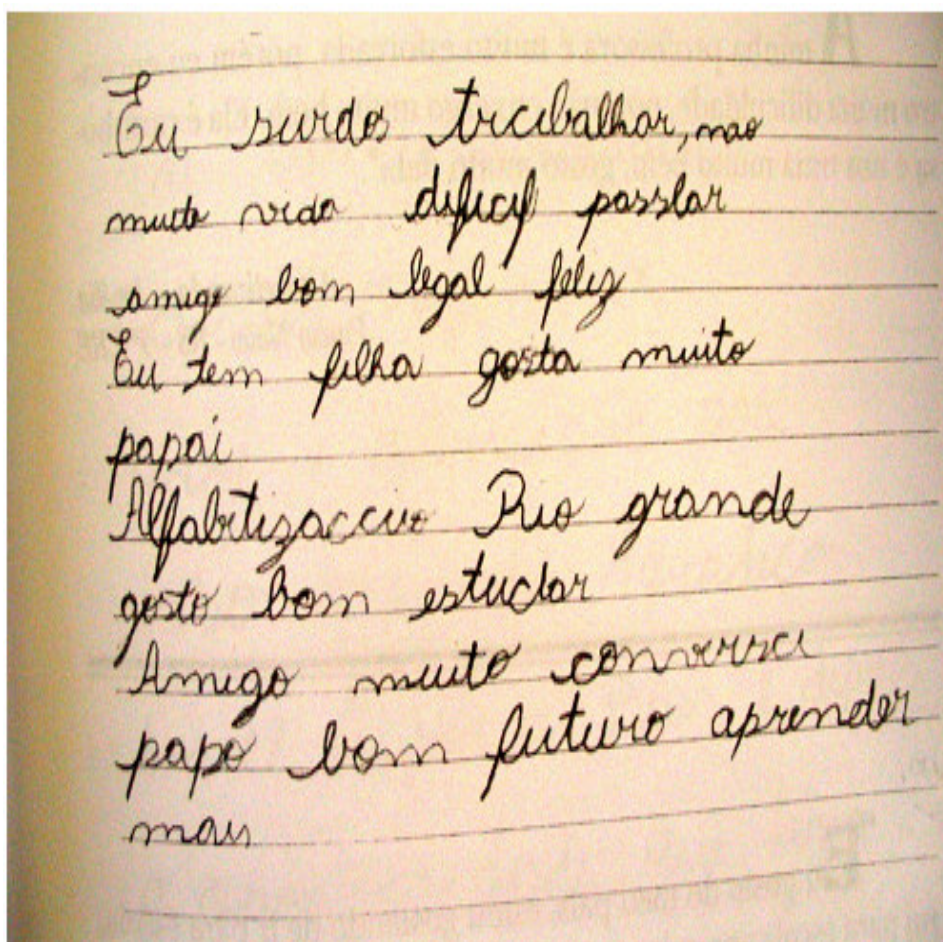 Eu surdos trcibalhar, não
muito vida dificil passlar
amigo bom legal feliz
Eu tem filha gosta muito
papai
Alfabetizaccuo Rio grande
gosto bom estudar
Amigo muito conversa
papo bom futuro aprender
mais